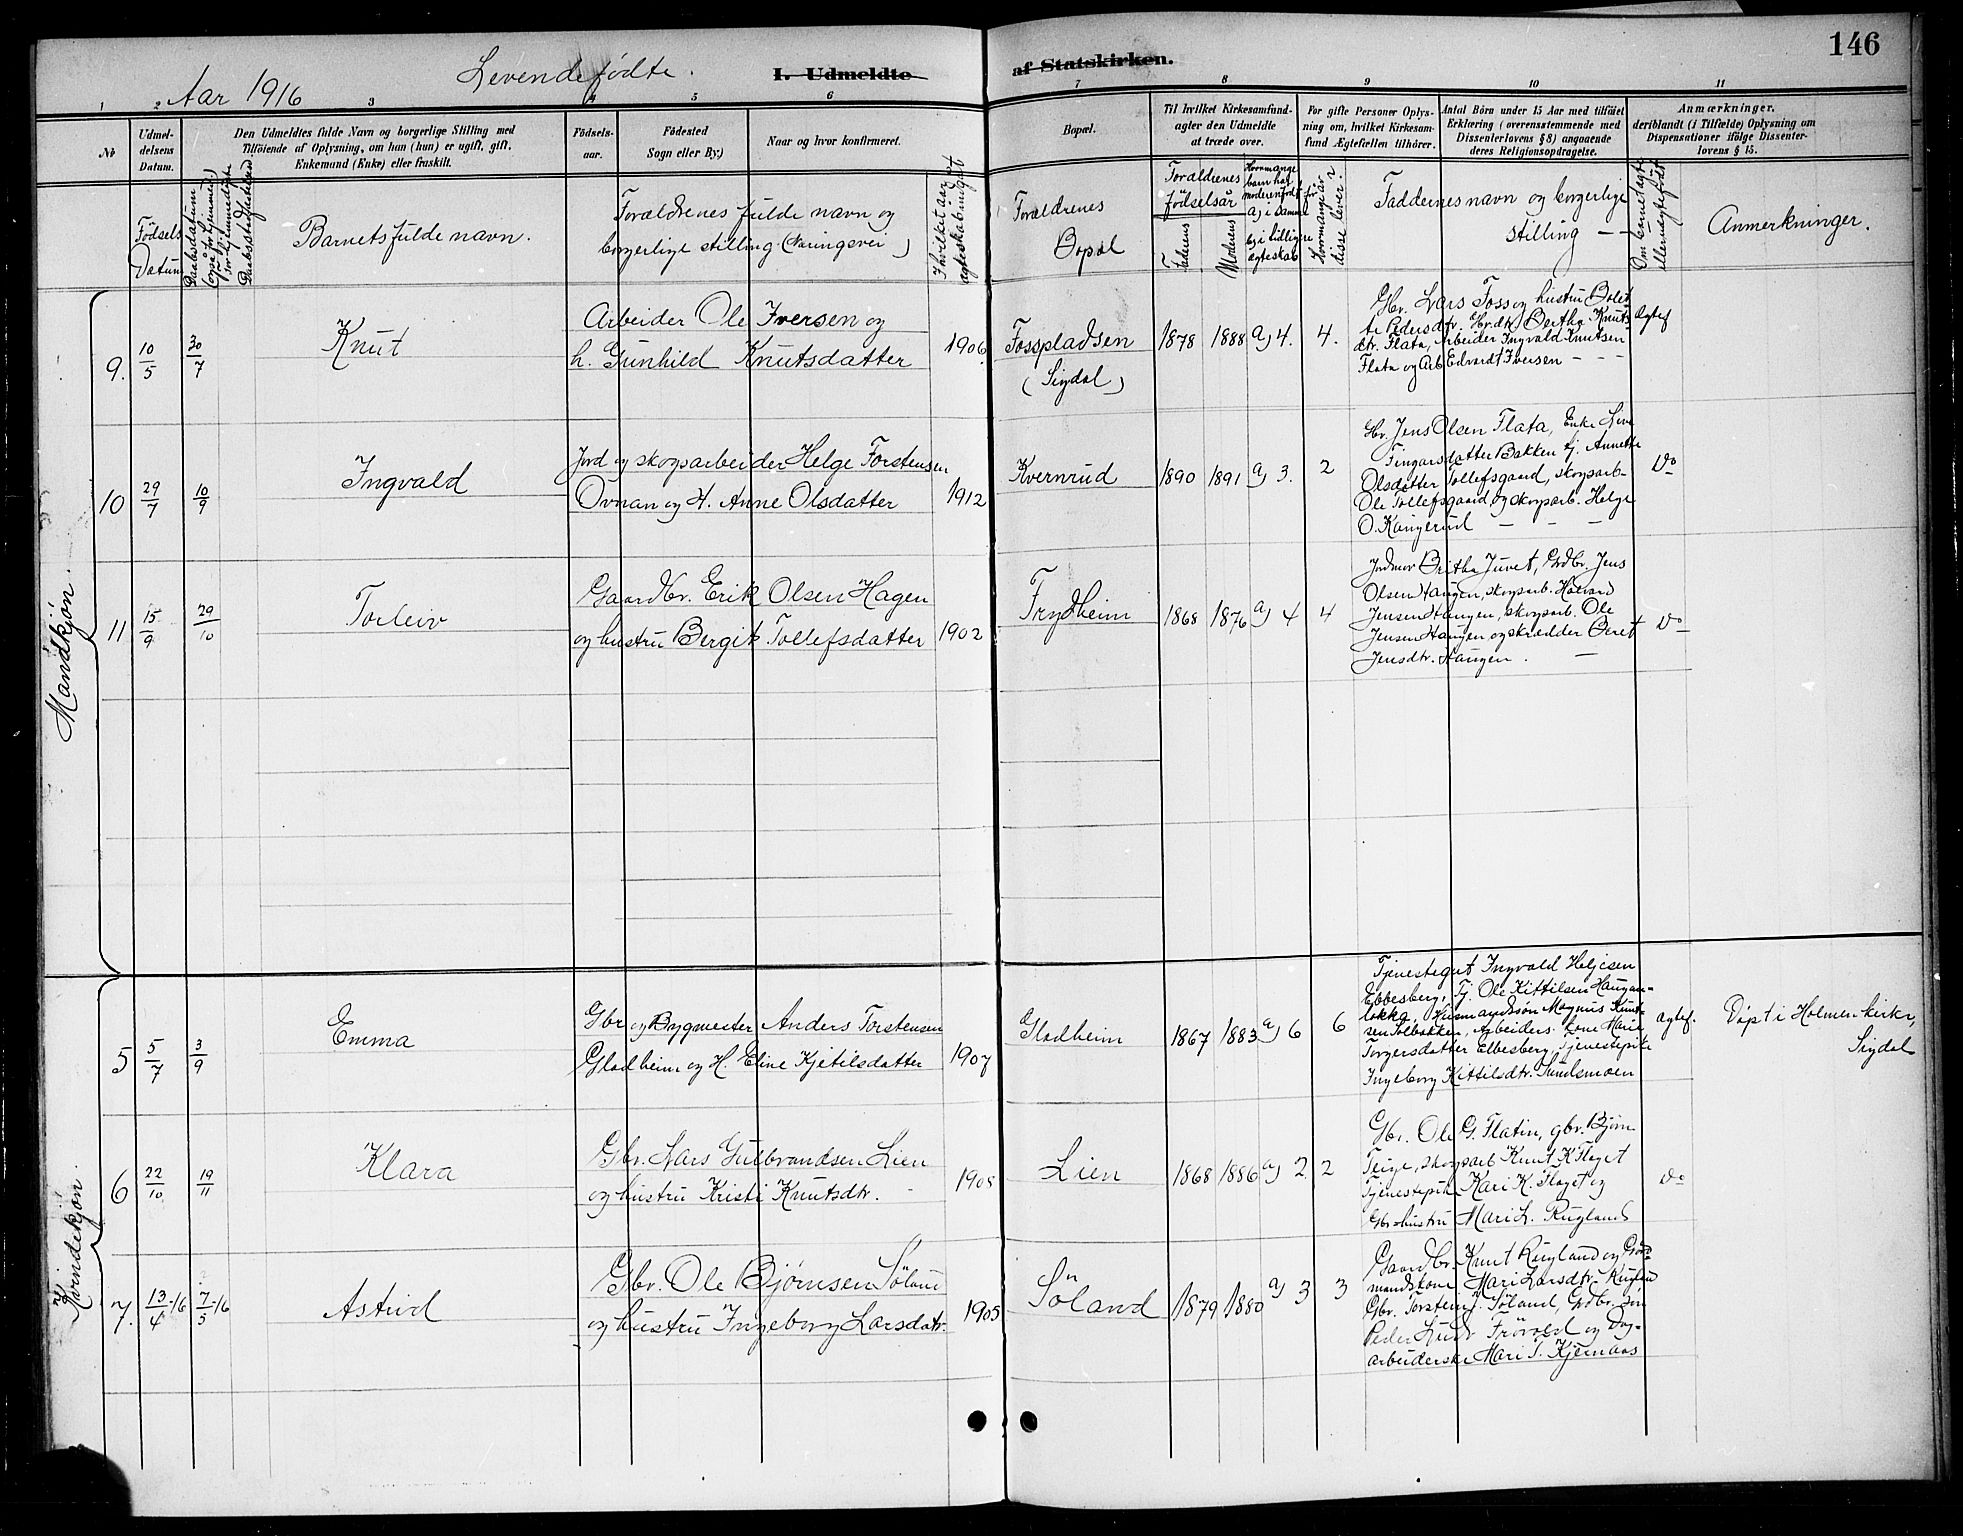 146
Aar 1916
Levendefødte.
I. Udmeldte
af Statskirken.
1 2 3 4 5 6
7 8 9 10 11
No
Udmel-
delsens
Datum.
Den Udmeldtes fulde Navn og borgerlige Stilling med
Tilföiende af Oplysning, om han (hun) er ugift, gift,
Enkemand (Enke) eller fraskilt.
Födsels-
aar.
Födested
Sogn eller By.)
Naar og hvor konfirmeret.
Bopæl.
Til hvilket Kirkesamfund-
agter den Udmeldte
at træde over.
For gifte Personer Oplys-
ning om, hvilket Kirkesam-
fund Ægtefællen tilhörer.
Antal Börn under 15 Aar med tilföiet
Erklæring (overensstemmende med
Dissenterlovens § 8) angaaende
deres Religionsopdragelse.
Anmærkninger,
deriblandt (i Tilfælde) Oplysning om
Dispensationer ifölge Dissenter-
lovens § 15.
Fødsels
Datum
Daabsdatum
(også for hjemmed.)
Daabsstadfestelsesd.
Barnets fulde navn.
Forældrenes fulde navn og
borgerlige stilling (Næringsvei)
I hvilket aar
ægteskab indgaat
Forældrenes
Bopæl
Forældrenes
fødselsår
Faderens
Moderens
Hvormange
barn har
moderen født før
a) i samme
b) i tidligere
ægteskab
Hvormange är
disse lever?
Faddernes navn og borgerlige
stilling — —
Om barnet ægte
eller uægte født
Anmerkninger.
Mandkjøn.
9. 10/5 30/7
Knut
Arbeider Ole Iversen og
h. Gunhild Knutsdatter
1906
Fosspladsen
(Sigdal)
1878 1888 a) 4. 4.
Gbr. Lars Foss og hustru Bolet-
te Pedersdtr. Gbr.dtr. Bertha Knuts-
dtr. Flata, Arbeider Ingvald Knutsen
Flata og Arb Edvardt Iversen - - -
ægtef
10 29/7 10/9
Ingvald
Jord og skogsarbeider Helge Torstensen
Ovnan og H. Anne Olsdatter
1912
Kvernrud
1890 1891 a) 3. 2
Gbr. Jens Olsen Flata, Enke Live
Fingarsdatter Bakken tj. Annette
Olsdatter Tollefsgaard, skogsarb-
Ole Tollefsgaard og skogsarb. Helge
O. Kangerud — — —
do
11 15/9 29/10
Torleiv
Gaardbr. Erik Olsen Hagen
og hustru Bergit Tollefsdatter
1902
Frydheim
1868 1876 a) 4 4
Jordmor Britha Juvet, Grdbr. Jens
Olsen Haugen, skogsarb. Halvard
Jensen Haugen, skogsarb. Ole
Jensen Haugen og skrædder Beret
Jensdtr. Haugen. —
do
Kvindekjøn.
5 5/7 3/9
Emma
Gbr og Bygmester Anders Torstensen
Gladheim og H. Eline Kjetilsdatter
1907
Gladheim
1867 1883 a) 6 6
Tjenestegut Ingvald Helgesen
Ebbesberg, Tj. Ole Kittilsen Haugan-
løkka, Husmandssøn Magnus Knut-
sen Solbakken, Arbeiders. kone Marie
Torgersdatter Ebbesberg, Tjenestepike
Ingeborg Kittilsdtr. Sundsmoen
ægtef.
Døpt i Holmen kirke,
Sigdal
6 22/10 19/11
Klara
Gbr. Lars Gulbrandsen Lien
og hustru Kristi Knutsdtr.
1905
Lien
1868 1886 a) 2. 2
Gbr. Ole G. Flatin, gbr. Bjørn
Teige, skogsarb Knut K Flaget
Tjenestepik Kari K. Flaget og
Gbr. hustru Mari L. Rugland
do
7. 13/4-16 7/5-16
Astrid
Gbr. Ole Bjørnsen Søland
og hustru Ingeborg Larsdatr.
1905
Søland
1879 1880 a) 3 3
Gaardbr. Knut Rugland og Gård-
mandskone Mari Larsdtr. Rugland
Gbr. Torstein J. Søland, Grdbr. søn
Peder Lund Frøvold og Dag-
arbeiderske Mari T. Kjernaas